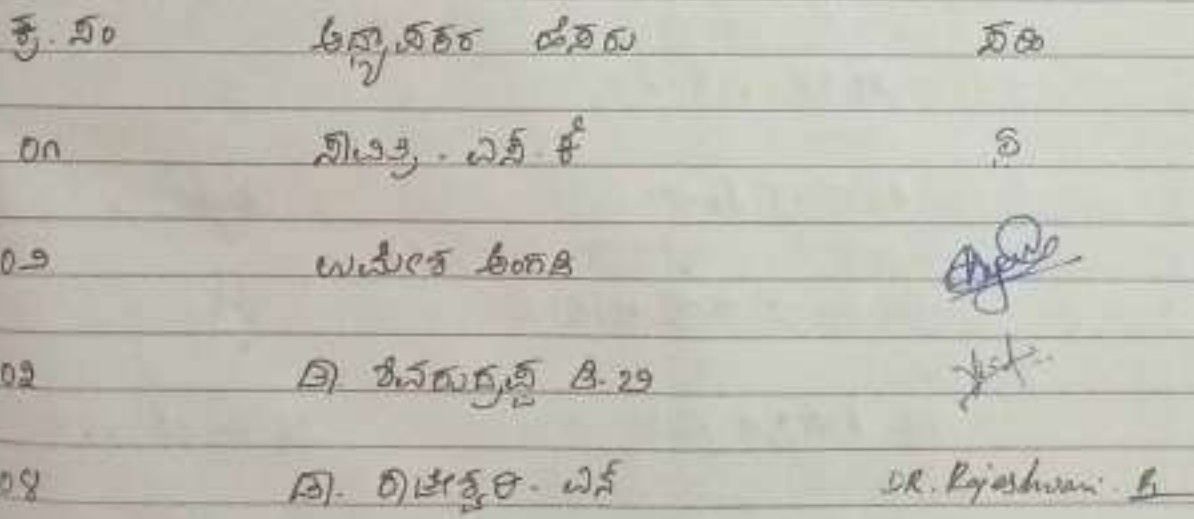 ಕ್ರ. ಸಂ ಅಧ್ಯಾಪಕರ ಹೆಸರು ಸಹಿ
೦೧ ಸಾವಿತ್ರಿ. ಎಸ್. ಕೆ
೦೨ ಉಮೇಶ ಅಂಗಡಿ
೦೩ ಡಾ ಶಿವರುದ್ರಪ್ಪ
೦೪ ಡಾ. ರಾಜೇಶ್ವರಿ. ಎನ್ DR. Rajeshwari